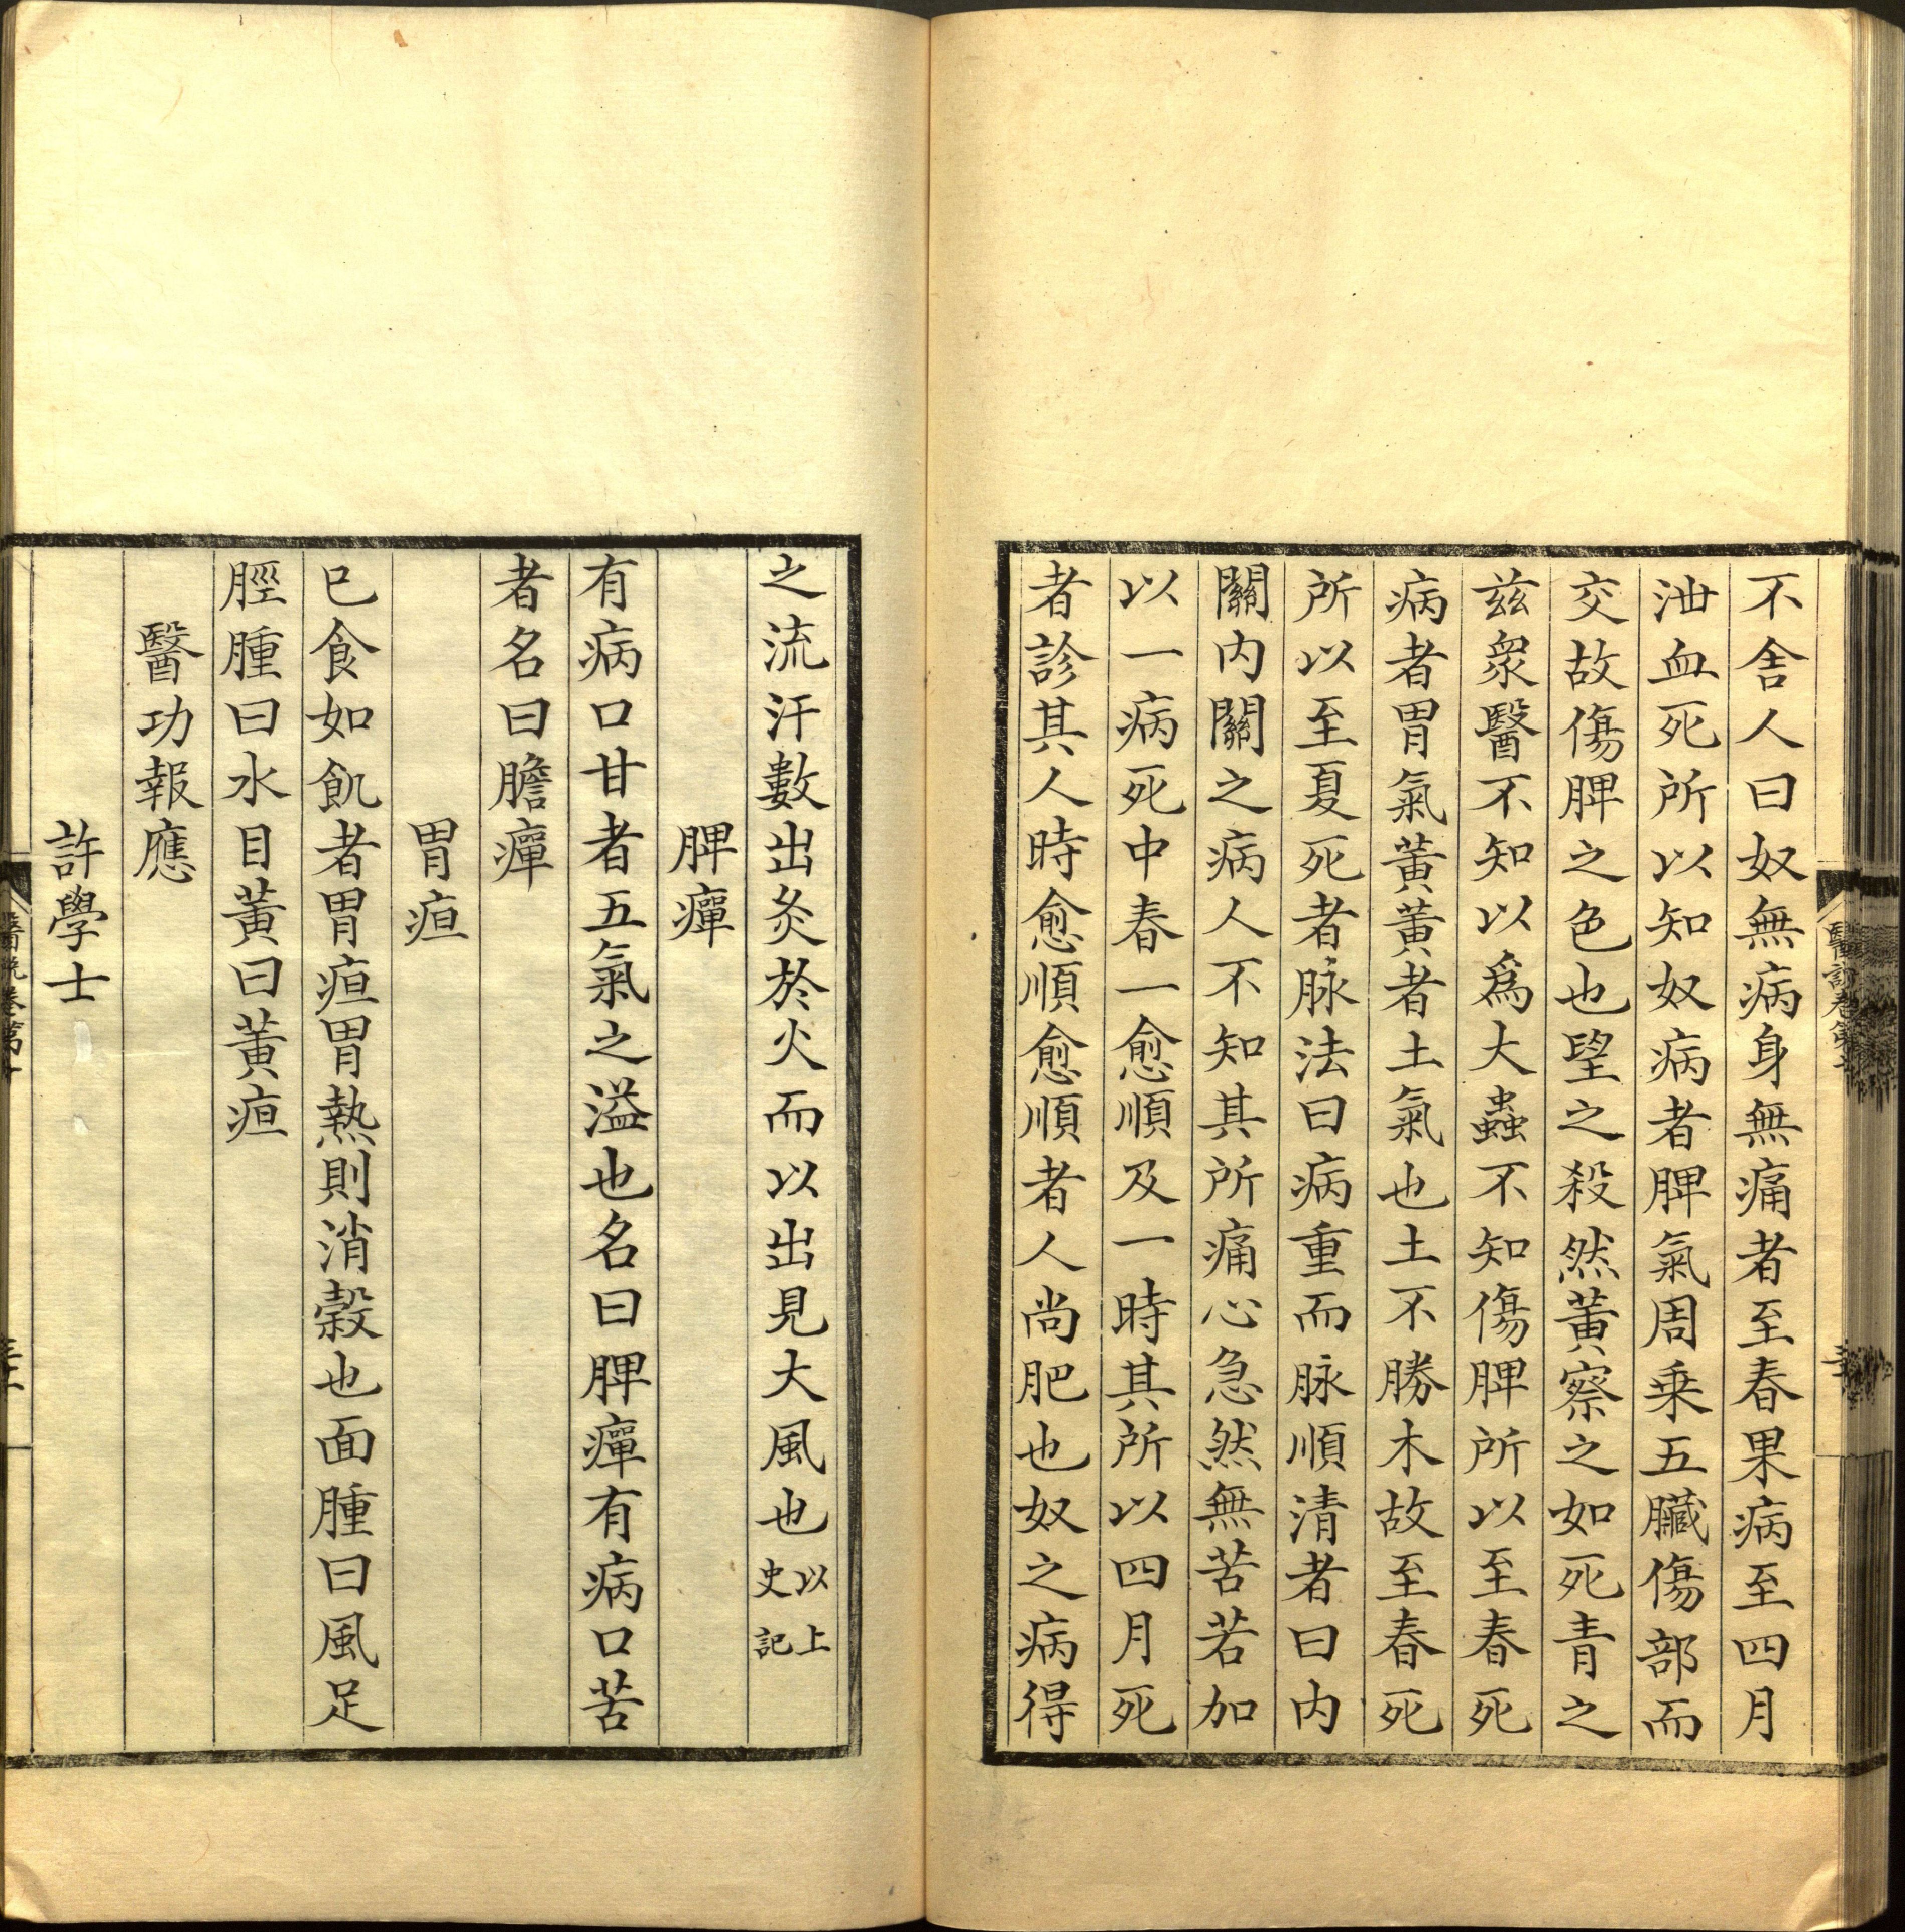 不舍人曰奴無病身無痛者至春果病至四月
泄血死所以知奴病者脾氣周乗五臟傷部而
交故傷脾之色也望之殺然黃察之如死青之
茲衆醫不知以爲大蟲不知傷脾所以至春死
病者胃氣黃黃者土氣也土不勝木故至春死
所以至夏死者脉法曰病重而脉順清者曰内
關内關之病人不知其所痛心急然無苦若加
以一病死中春一愈順及一時其所以四月死
者診其人時愈順愈順者人尚肥也奴之病得
之流汗數出炙於火而以出見大風也以上史記
脾癉
有病口甘者五氣之溢也名曰脾癉有病口苦
者名曰膽癉
胃疸
已食如飢者胃疸胃熱則消穀也面腫曰風足
脛腫曰水目黃曰黃疸
醫功報應
許學士
醫說卷第